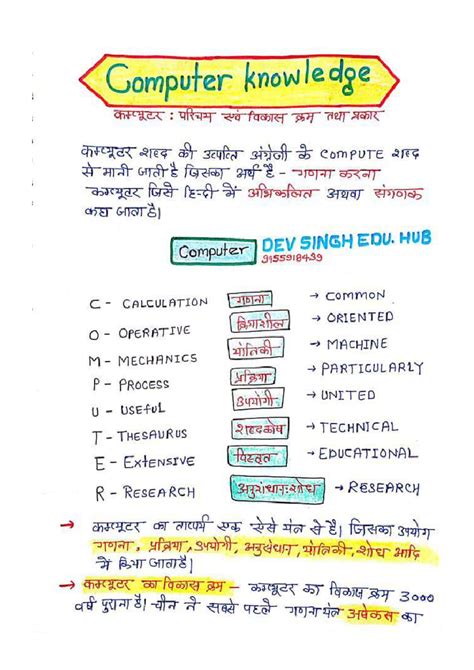 Computer knowledge
कम्प्यूटर : परिचय एवं विकास क्रम तथा प्रकार
कम्प्यूटर शब्द की उत्पत्ति अंग्रेजी के COMPUTE शब्द
से मानी जाती है जिसका अर्थ है - गणना करना
कम्प्यूटर जिसे हिन्दी में अभिकलित्र अथवा संगणक
कहा जाता है।
Computer DEV SINGH EDU. HUB
9155918439
C - CALCULATION गणना → COMMON
O - OPERATIVE क्रियाशील → ORIENTED
M - MECHANICS यांत्रिकी → MACHINE
P - PROCESS प्रक्रिया → PARTICULARLY
U - USEFUL उपयोगी → UNITED
T - THESAURUS शब्दकोष → TECHNICAL
E - EXTENSIVE विस्तृत → EDUCATIONAL
R - RESEARCH अनुसंधान-शोध → RESEARCH
→ कम्प्यूटर का तात्पर्य एक ऐसे यंत्र से है। जिसका उपयोग
गणना, प्रक्रिया, उपयोगी, अनुसंधान, यांत्रिकी, शोध आदि
में किया जाता है।
→ कम्प्यूटर का विकास क्रम - कम्प्यूटर का विकास क्रम 3000
वर्ष पुराना है। चीन ने सबसे पहले गणना यंत्र अबेकस का